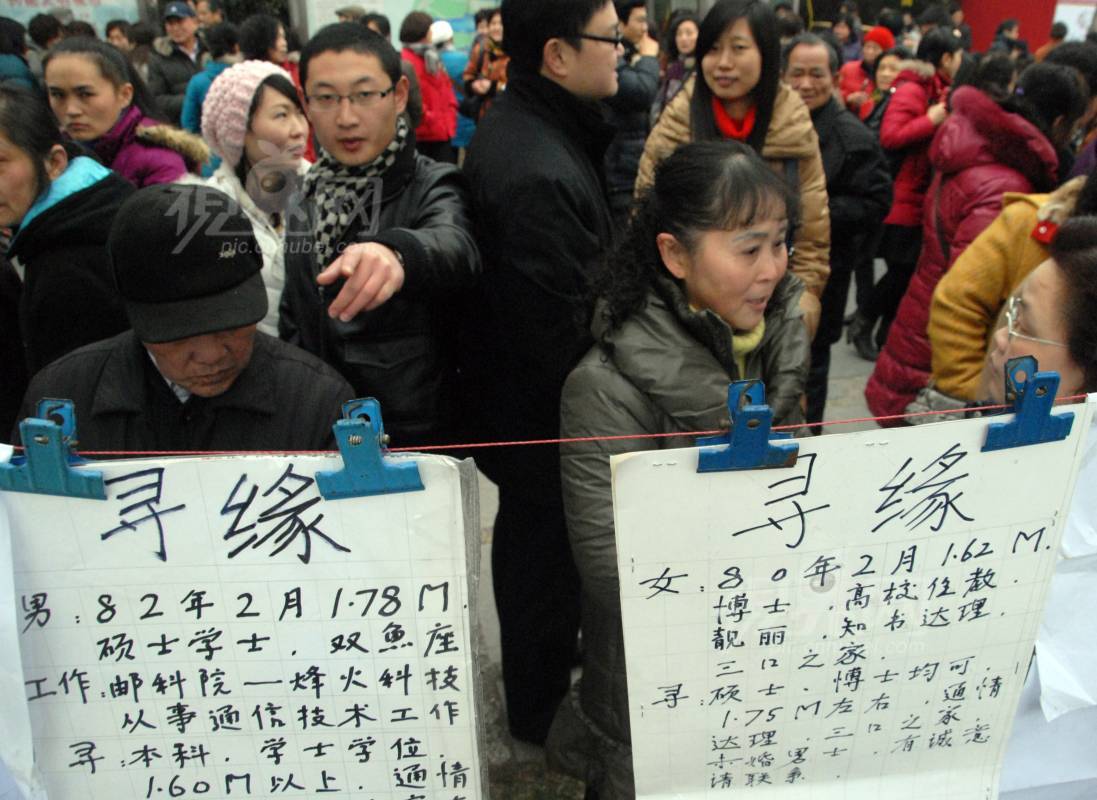 寻缘
男：82年2月 1.78M.
硕士学士．双鱼座
工作：邮科院一烽火科技
从事通信技术工作
寻：本科．学士学位．
1.60M以上．通情
寻缘
女：80年2月 1.62M.
博士．高校任教．
靓丽．知书达理．
三口之家．
寻：硕士．博士均可．
1.75M左右．通情
达理．三口之家．
未婚男士．有诚意
请联系．